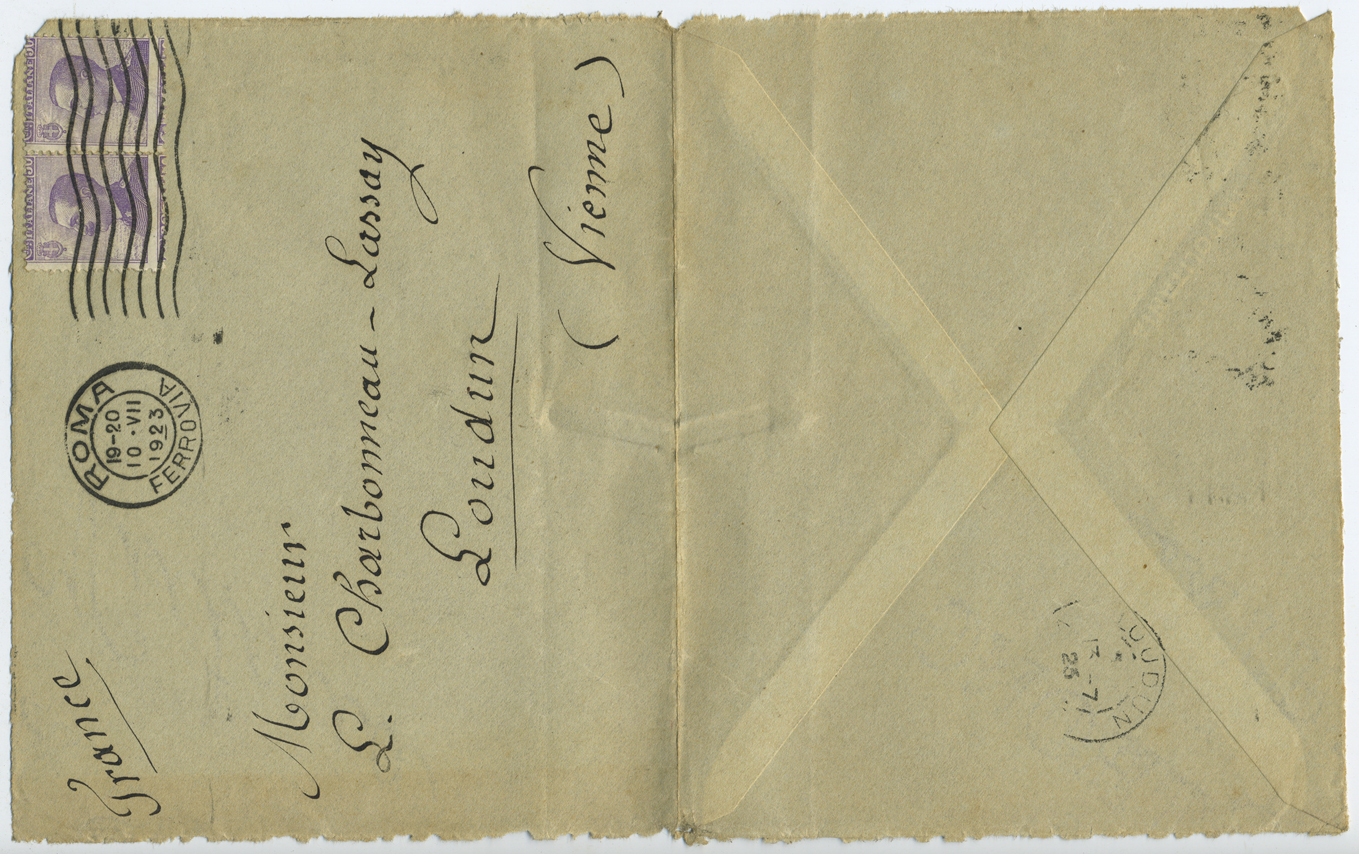 France
ROMA
19-20
10 · VII
1923
FERROVIA
Monsieur
L. Charbonneau-Lassay
Loudun
(Vienne)
LOUDUN